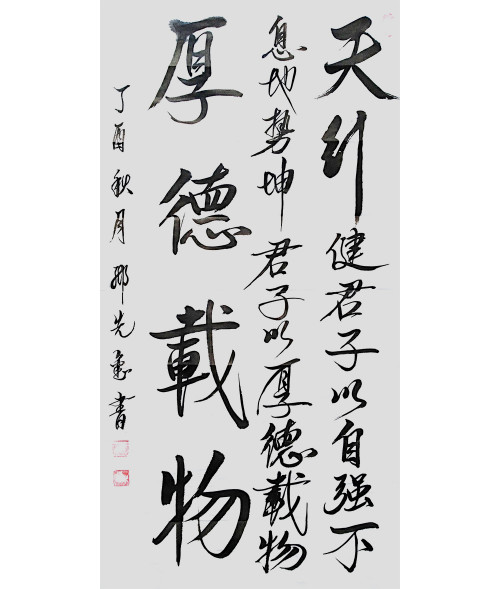 天行健君子以自强不
息地勢坤君子以厚德載物
厚德載物
丁酉秋月先書